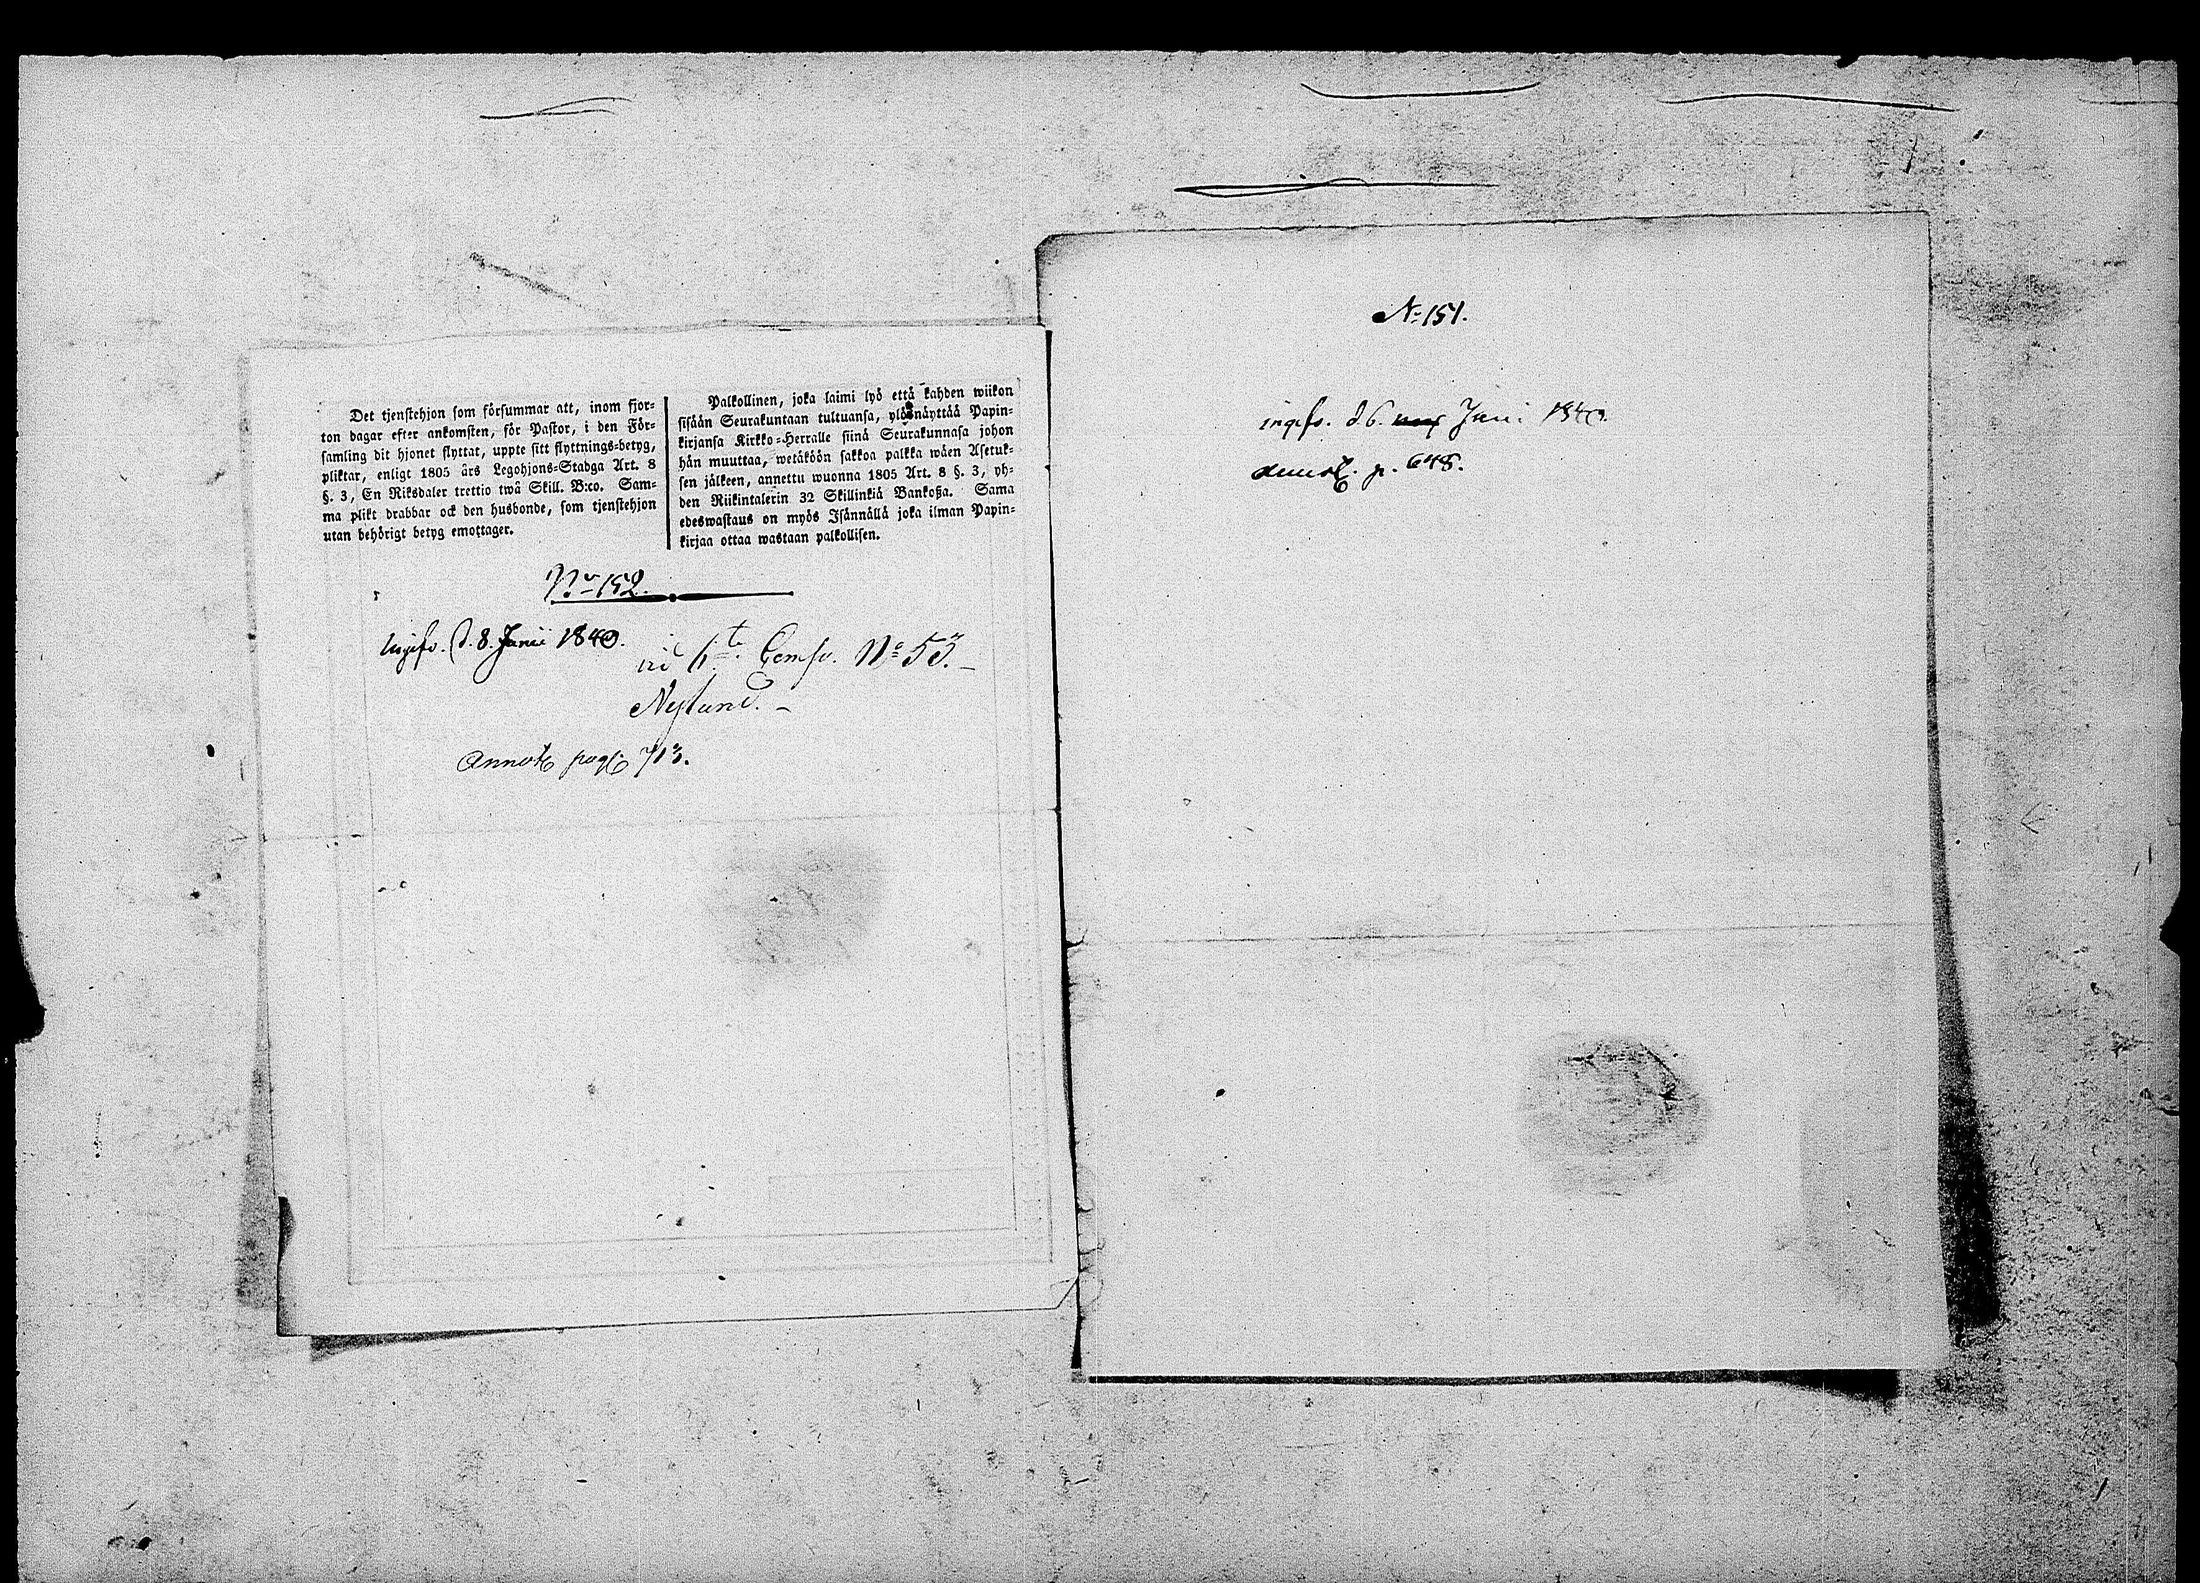 Det tjenstehjon som försummar att, inom fjor-
ton dagar efter ankomsten, för Pastor, i den För-
samling dit hjonet flyttat, uppte sitt flyttnings-betyg,
pliktar, enligt 1805 års Legohjons-Stadga Art. 8
§. 3, En Riksdaler trettio twå Skill. B:co. Sam-
ma plikt drabbar ock den husbonde, som tjenstehjon
utan behörigt betyg emottager.
Palkollinen, joka laimi lyö että kahden wiikon
sisään Seurakuntaan tultuansa, ylösnäyttää Papin-
kirjansa Kirkko-Herralle siinä Seurakunnasa johon
hän muuttaa, wetäköön sakkoa palkka wäen Asetuk-
sen jälkeen, annettu wuonna 1805 Art. 8 §. 3, yh-
den Riikintalerin 32 Skillinkiä Bankoßa. Sama
edeswastaus on myös Isännällä joka ilman Papin-
kirjaa ottaa wastaan palkollisen.
No 152.
Ingifv. d. 8. Junii 1840.
vid 6te Comp. No 53.
Nylund.
Annot. pag. 713.
No 151.
ingifv. d 6. Juni 1840.
Annot. p. 648.